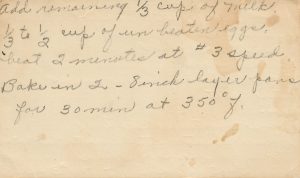 add remaining 1/3 cup of milk.
1/3 to 1/2 cup of un beaten eggs.
beat 2 minutes at #3 speed.
Bake in 2 - 8 inch layer pans
for 30 min at 350° F.